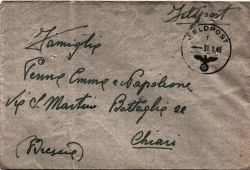 Feldpost
FELDPOST
f
11.1.45
Famiglia
Penna Emma e Napoleone
Via S. Martino Battaglia 22
Chiari
(Brescia)